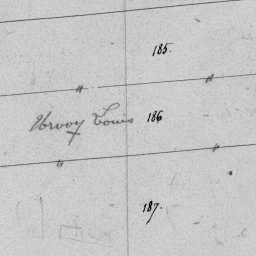 185.
" "
Urvoy Louis 186
" "
187.